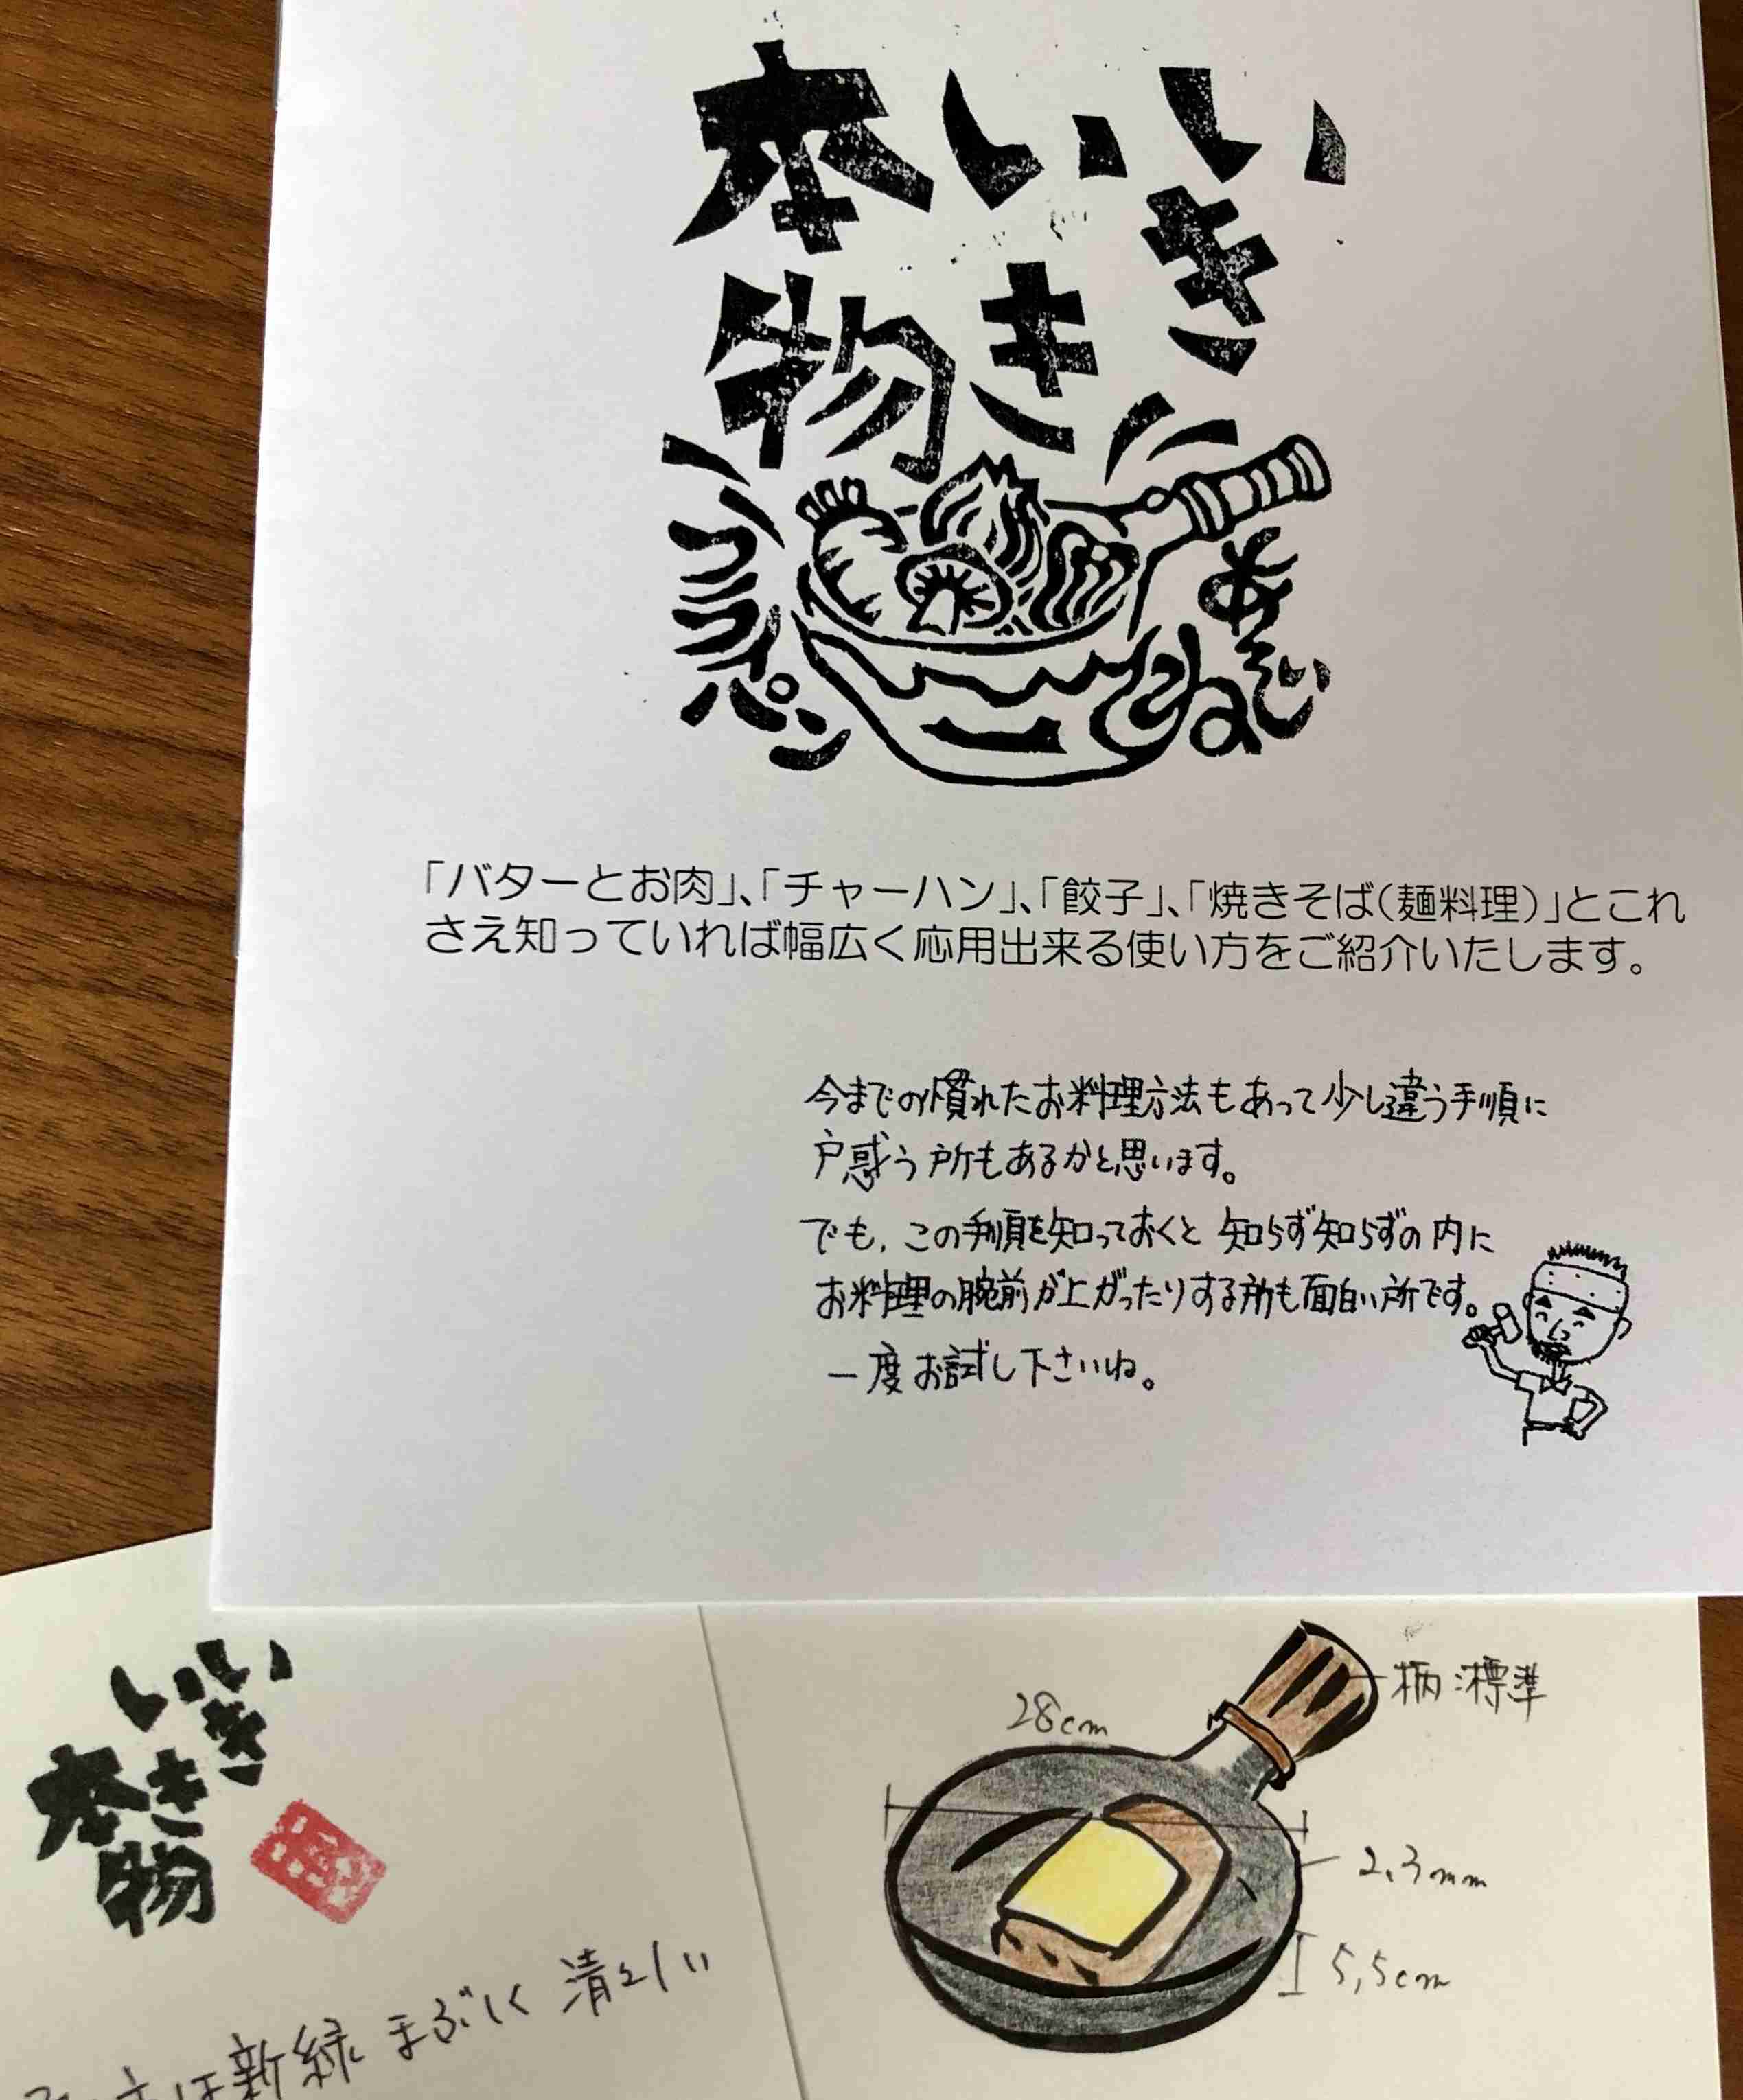 いき
いき
本物
フライパン
あそびね
「バターとお肉」、「チャーハン」、「餃子」、「焼きそば(麺料理)」とこれ
さえ知っていれば幅広く応用出来る使い方をご紹介いたします。
今までの慣れたお料理方法もあって少し違う手順に
戸惑う所もあるかと思います。
でも、この手順を知っておくと知らず知らずの内に
お料理の腕前が上がったりする所も面白い所です。
一度お試し下さいね。
いき
いき
本物
は新緑まぶしく清々しい
28cm
柄:標準
2.3mm
5.5cm